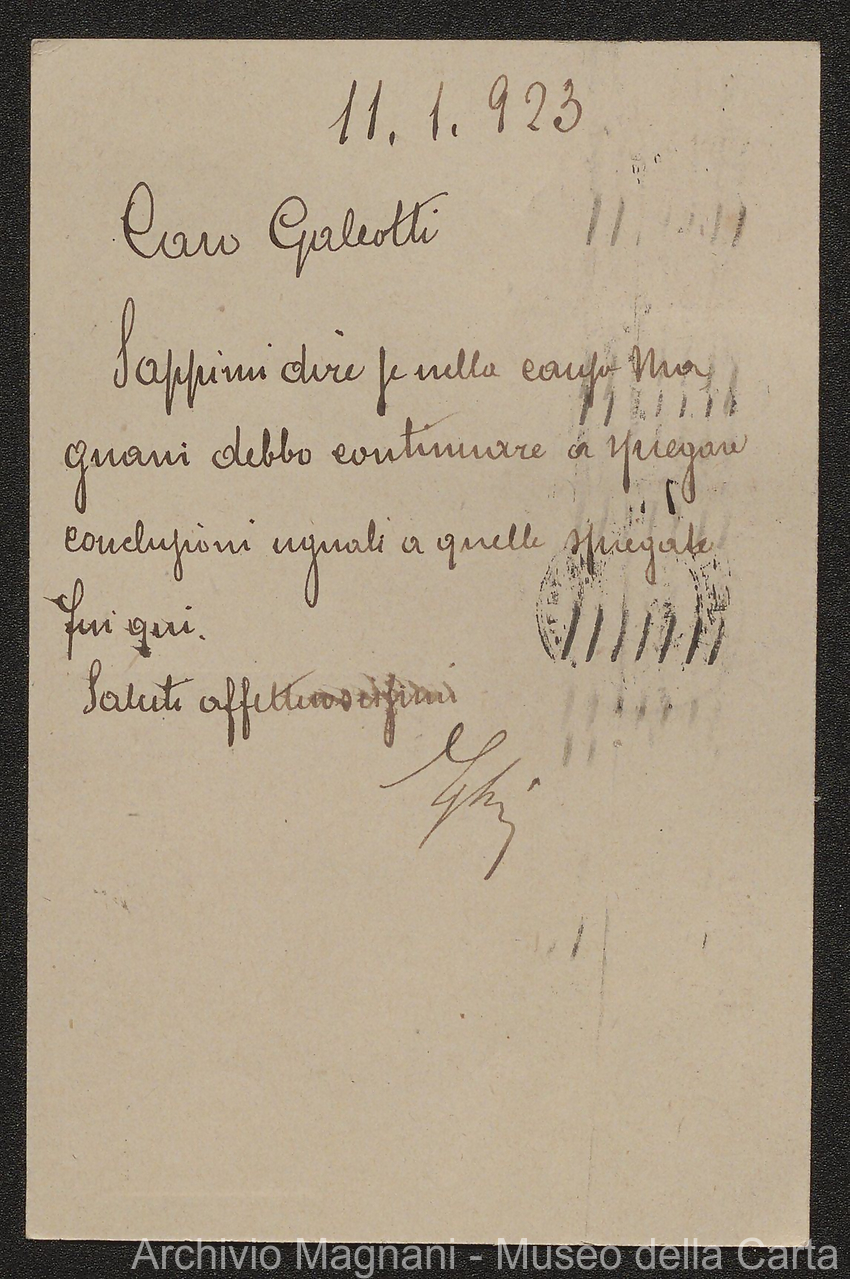 11. 1. 923
Caro Galeotti
Sappimi dire se nella causa Ma
gnani debbo continuare a spiegare
conclusioni uguali a quelle spiegate
fin qui.
Saluti affettuosissimi
Archivio Magnani - Museo della Carta